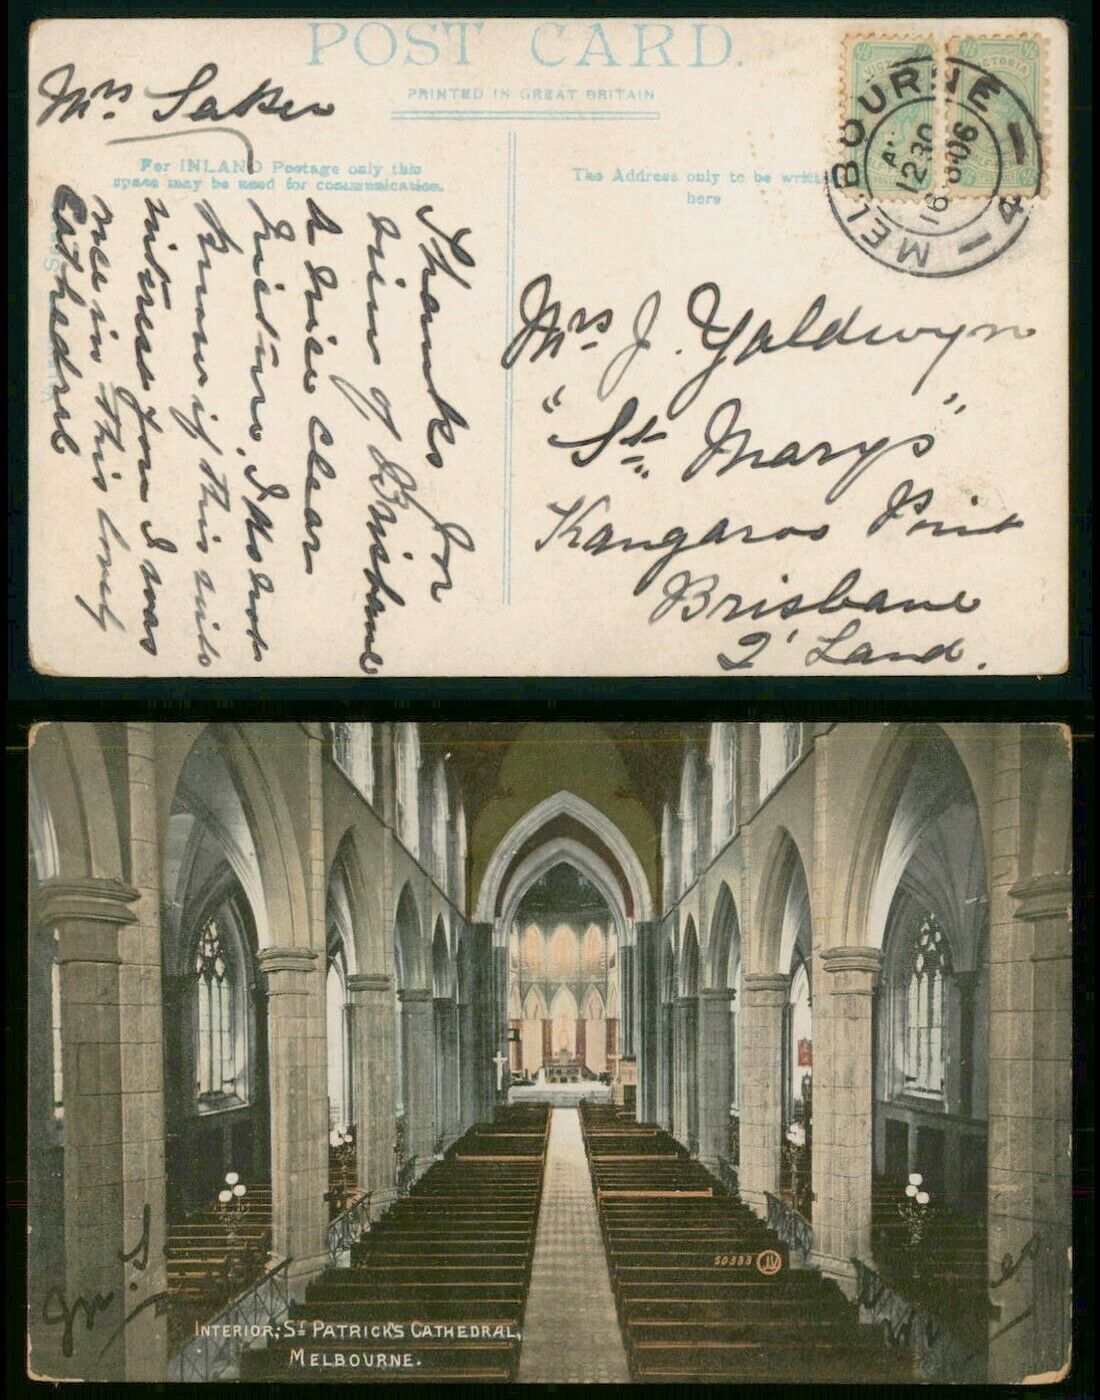 POST CARD.
PRINTED IN GREAT BRITAIN
For INLAND Postage only this
space may be used for communication.
The Address only to be written
here
Mrs. Saker
Thanks for
view of Brisbane
a nice clear
picture. I do not
know if this will
interest you I was
in this lovely
Cathedral
½ ½ ½
VICTORIA
VICTORIA
MELBOURNE
A.
12 30
16 8 06
4
Mrs J. Yaldwyn
"St Marys"
Kangaroo Point
Brisbane
Q'Land.
50283 JV
INTERIOR, ST PATRICK'S CATHEDRAL,
MELBOURNE.